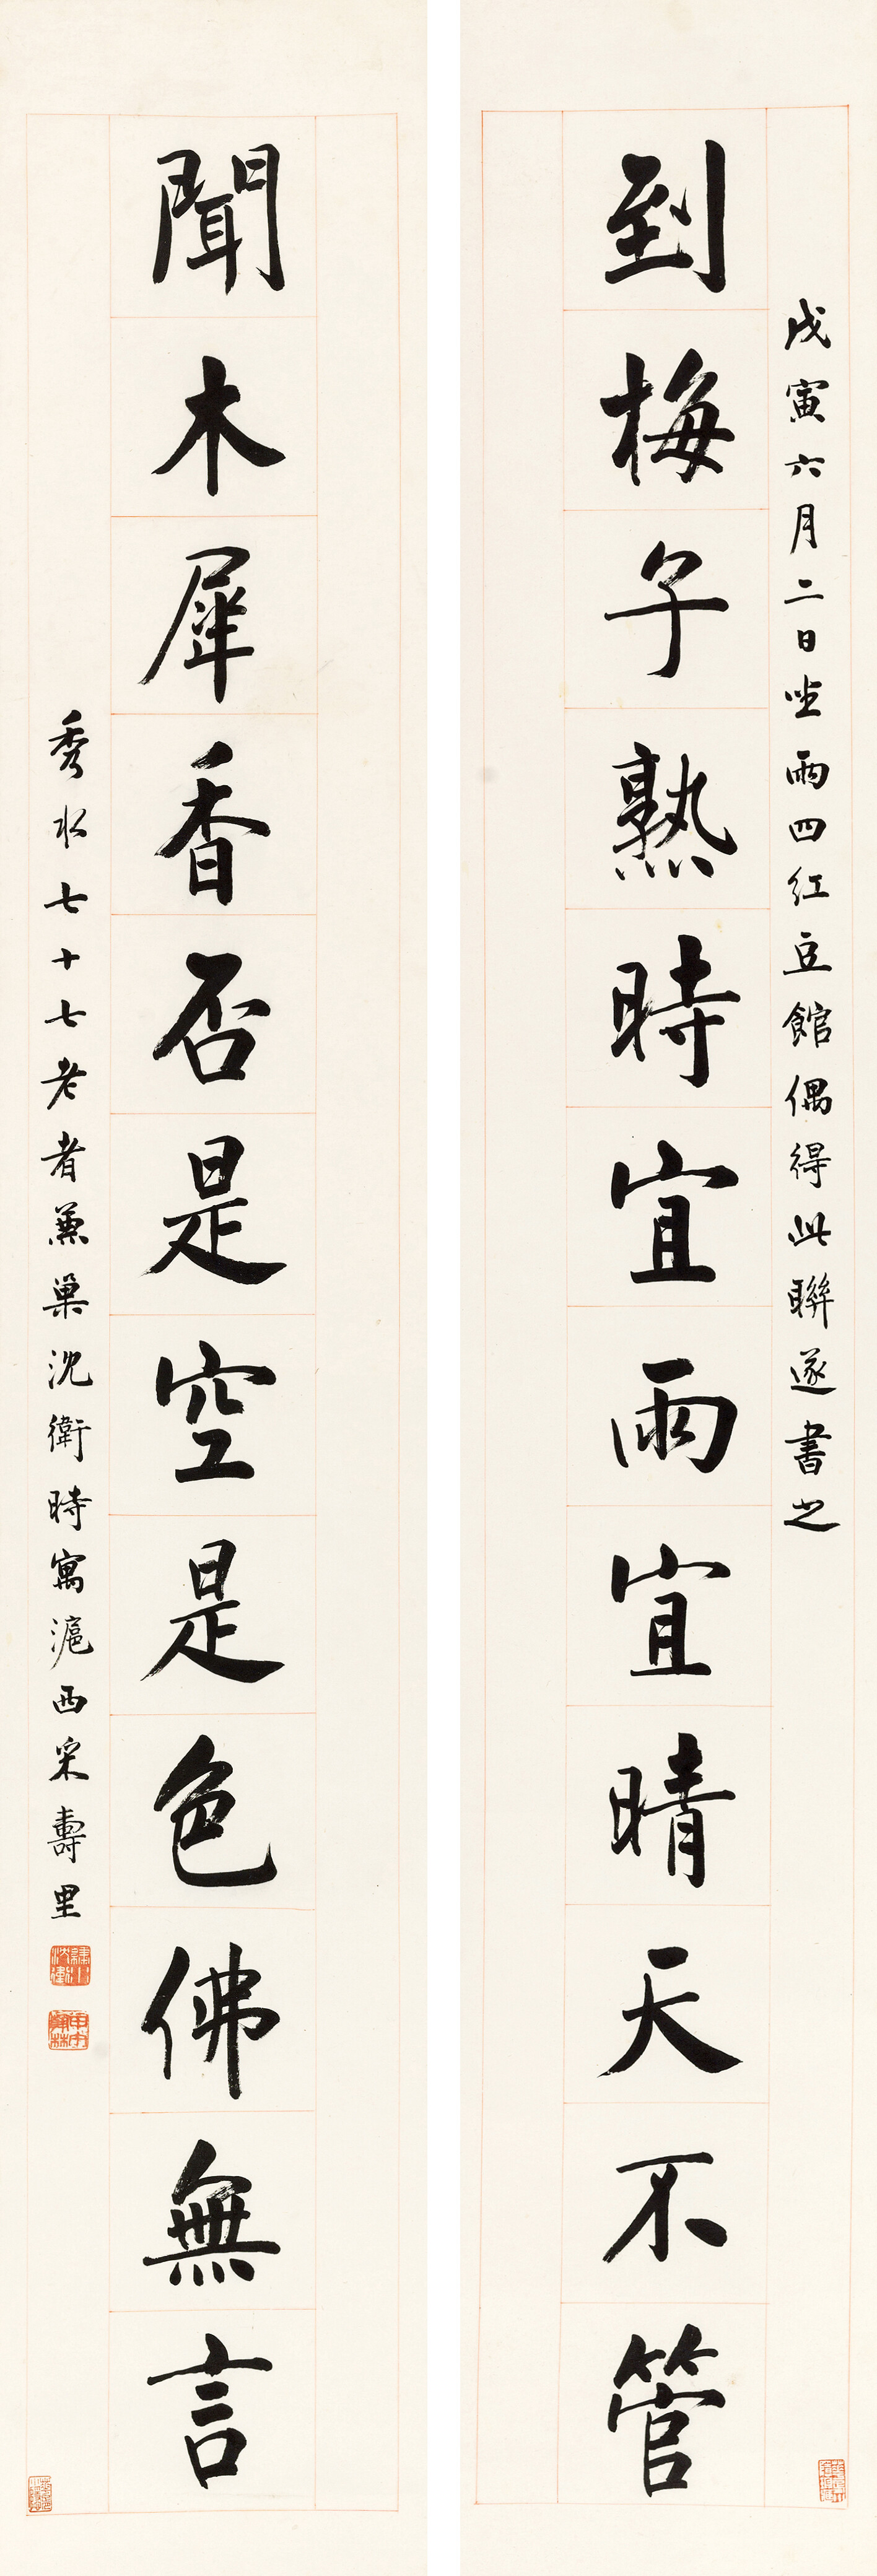 戊寅六月二日坐雨四紅豆館偶得此聯遂書之
到梅子熟時宜雨宜晴天不管
聞木犀香否是空是色佛無言
秀水七十七老者兼巢沈衛時寓滬西采壽里